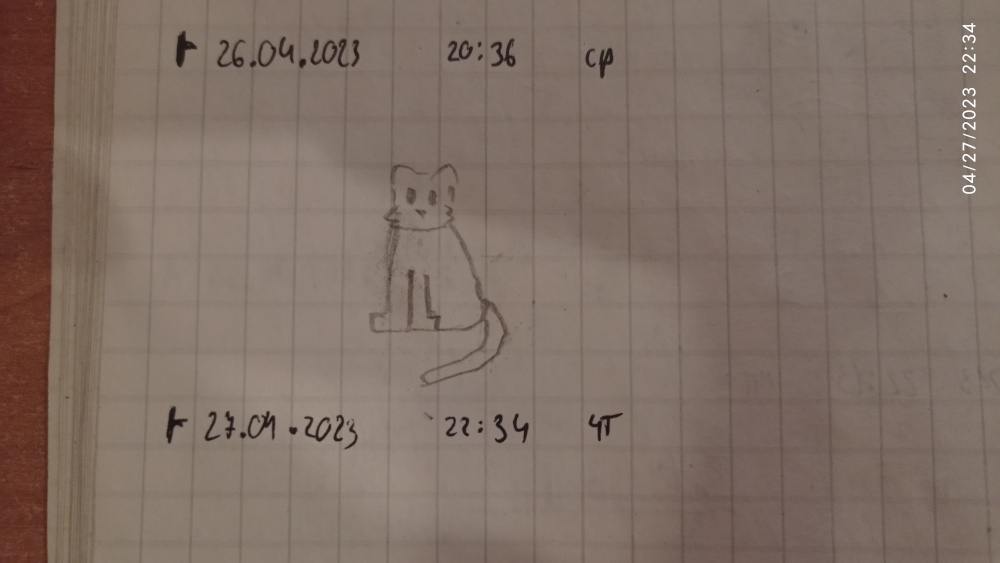 26.04.2023 20:36 ср
27.04.2023 22:34 чт
04/27/2023 22:34